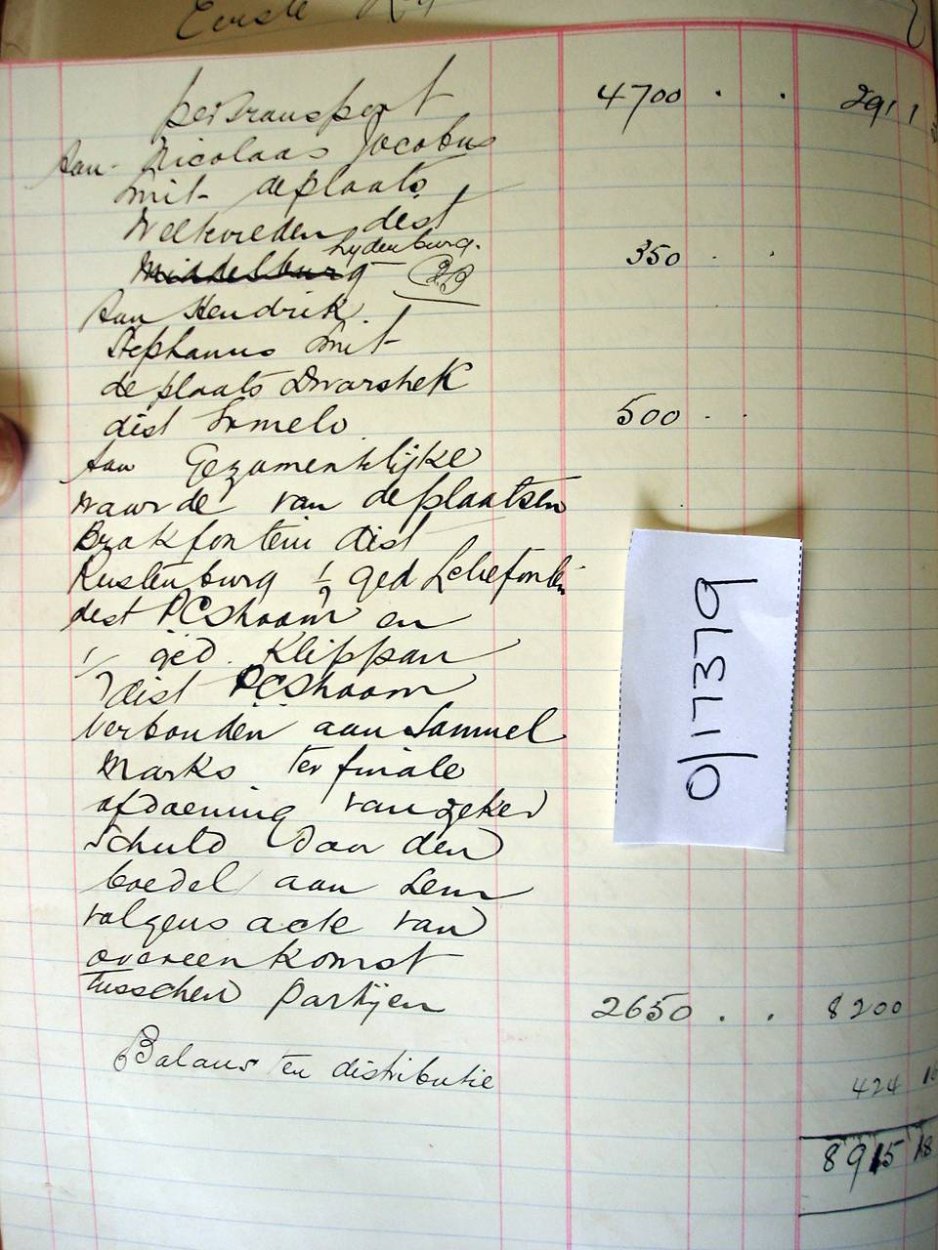 Eerste
per Transport 4700 . . 291 1
Aan Nicolaas Jacobus
mit de plaats
Weltvreden dist
Lydenburg.
Middelburg 350 . .
Aan Hendrik
Stephanus mit
de plaats Dwarshek
dist Ermelo 500 . .
Aan Gezamentlijke
waarde van de plaatsen
Brakfontein dist
Rustenburg ½ ged Leliefontein
dist PCShoom en
½ ged. Klippan
dist PCShoom
verbonden aan Samuel
Marks ter finale
afdoening van zeker
Schuld door den
boedel aan hem
volgens acte van
overeenkomst
tusschen partijen 2650 . . 8200
Balans ten distributie 424
8915 18
0/17379